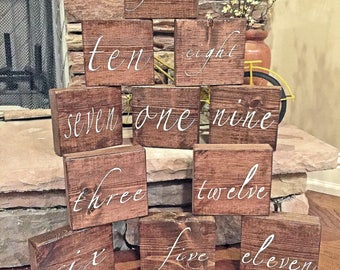 ten eight
seven one nine
three twelve
six five eleven